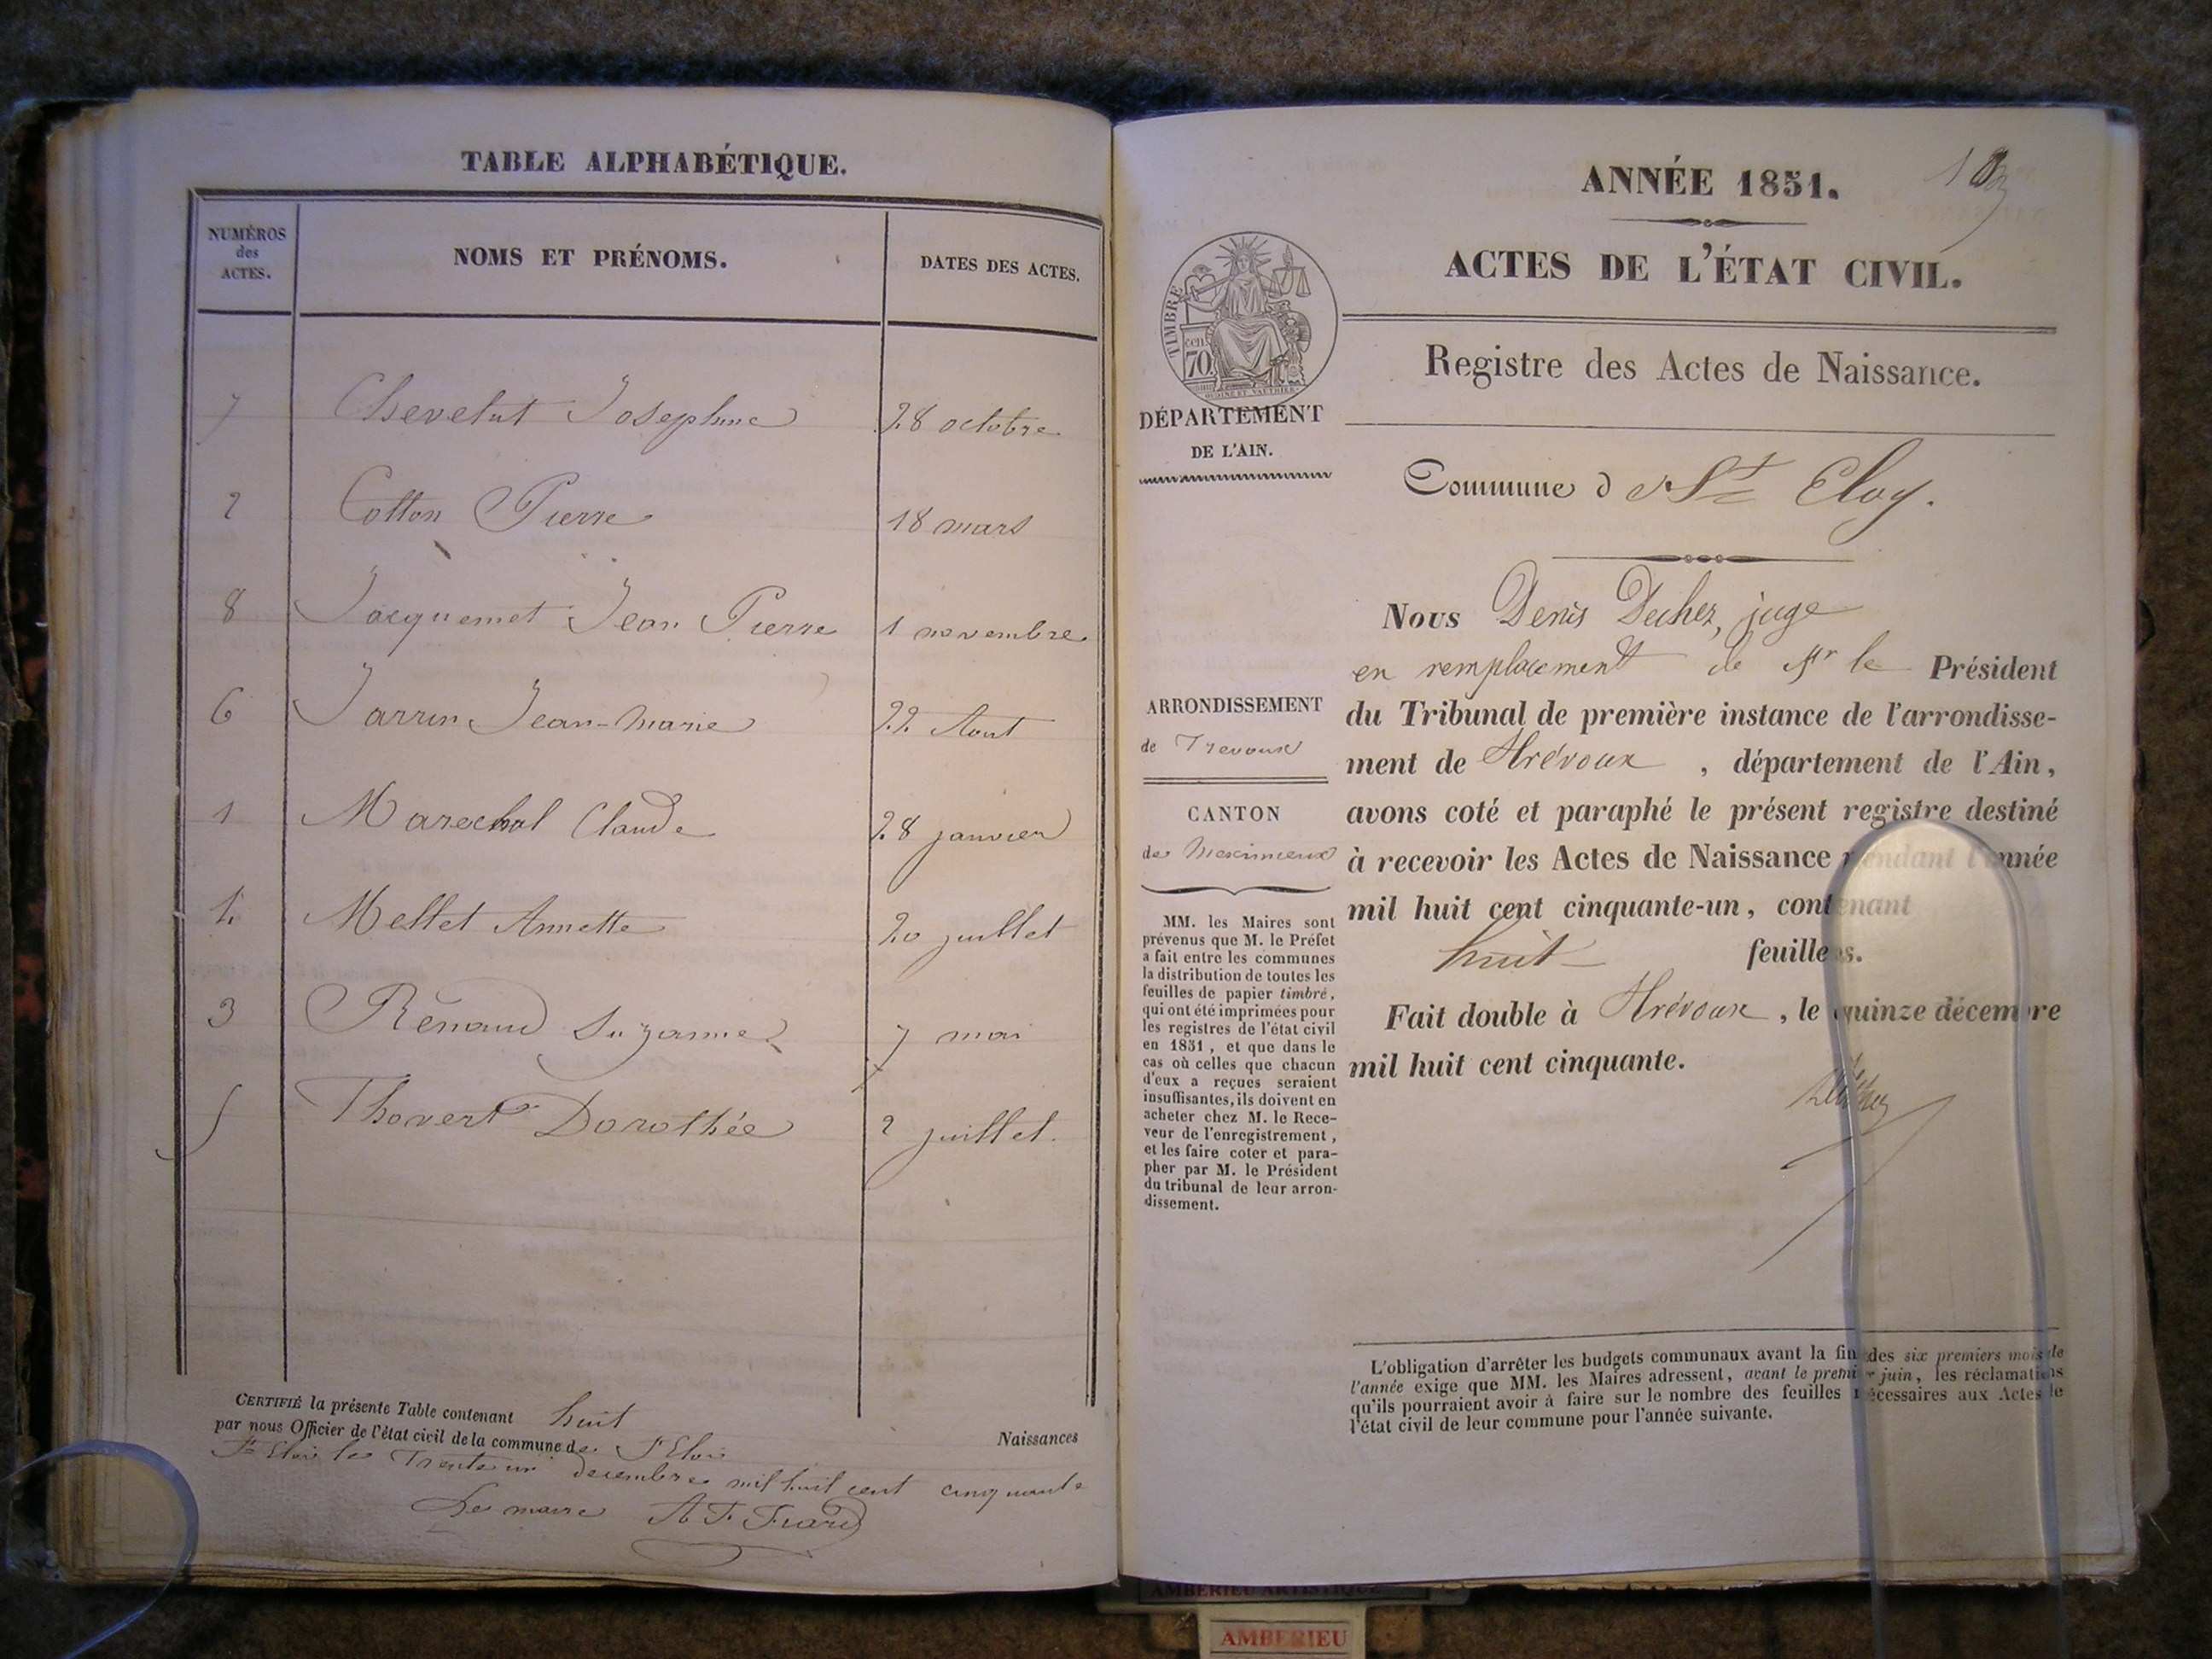 TABLE ALPHABÉTIQUE.
NUMÉROS
des
ACTES.
NOMS ET PRÉNOMS.
DATES DES ACTES.
7 Chevelut Josephine 28 octobre
2 Cotton Pierre 18 mars
8 Jacquemet Jean Pierre 1 novembre
6 Jarrin Jean-marie 22 Aout
1 Marechal Claude 28 janvier
Mellet Annette 20 juillet
3 Rénaud Suzanne 7 mai
5 Thovert Dorothée 2 juillet.
CERTIFIÉ la présente Table contenant huit Naissances
par nous Officier de l'état civil de la commune de St Eloi
St Eloi le Trente un decembre mil huit cent cinquante
Le maire A F Fiard
ANNÉE 1851.
ACTES DE L'ÉTAT CIVIL.
TIMBRE
cen.
70
OUDINÉ ET VAUTHIER
Registre des Actes de Naissance.
DÉPARTEMENT
DE L'AIN.
Commune de St Eloy.
Nous Denis Duchez, juge
en remplacement de Mr le Président
du Tribunal de première instance de l'arrondisse-
ment de Trévoux, département de l'Ain,
avons coté et paraphé le présent registre destiné
à recevoir les Actes de Naissance pendant l'année
mil huit cent cinquante-un, contenant
huit feuilles.
Fait double à Trévoux, le quinze décembre
mil huit cent cinquante.
ARRONDISSEMENT
de Trevoux
CANTON
de Meximieux
MM. les Maires sont
prévenus que M. le Préfet
a fait entre les communes
la distribution de toutes les
feuilles de papier timbré,
qui ont été imprimées pour
les registres de l'état civil
en 1851, et que dans le
cas où celles que chacun
d'eux a reçues seraient
insuffisantes, ils doivent en
acheter chez M. le Rece-
veur de l'enregistrement,
et les faire coter et para-
pher par M. le Président
du tribunal de leur arron-
dissement.
L'obligation d'arrêter les budgets communaux avant la fin des six premiers mois de
l'année exige que MM. les Maires adressent, avant le premier juin, les réclamations
qu'ils pourraient avoir à faire sur le nombre des feuilles nécessaires aux Actes de
l'état civil de leur commune pour l'année suivante.
AMBERIEU ARTISTIQUE
AMBERIEU